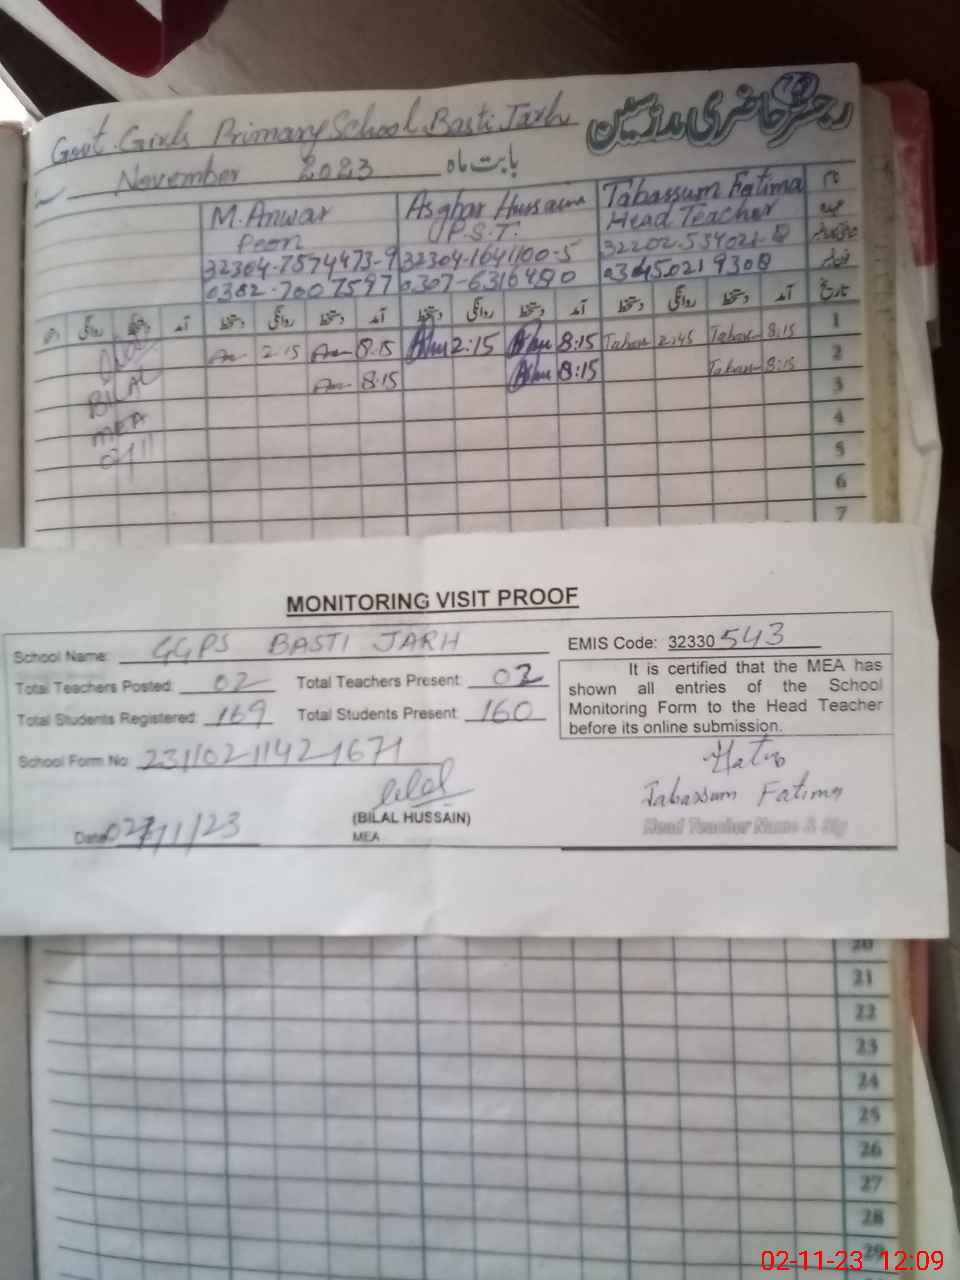 Govt. Girls Primary School, Basti Jarh
رجسٹر حاضری مدرسین
November 2023 بابت ماہ
M. Anwar Asghar Hussain Tabassum Fatima نام
Peon P.S.T. Head Teacher عہدہ
32304-7574473-9 32304-1641100-5 32202-534021-8
0302-7007597 0307-6316490 03450219308
روانگی آمد دستخط روانگی دستخط آمد دستخط روانگی دستخط آمد دستخط روانگی دستخط آمد تاریخ
2:15 8:15 2:15 8:15 2:45 8:15 1
8:15 8:15 8:15 2
BILAL 3
MEA 4
5
6
7
MONITORING VISIT PROOF
School Name: GGPS BASTI JARH EMIS Code: 32330 543
Total Teachers Posted: 02 Total Teachers Present: 02
Total Students Registered: 169 Total Students Present: 160
It is certified that the MEA has
shown all entries of the School
Monitoring Form to the Head Teacher
before its online submission.
School Form No: 23110211421671
Bilal
(BILAL HUSSAIN)
MEA
Date: 02/11/23
Tabassum Fatima
Head Teacher Name & Sig
20
21
22
23
24
25
26
27
28
29
02-11-23 12:09